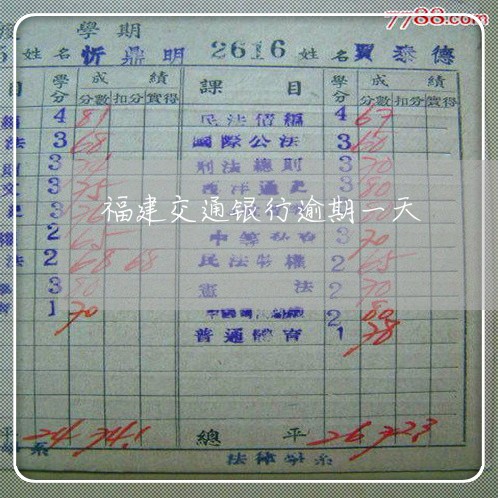 7788.com
學期
姓名 忻鼎明 2616 姓名 賈泰德
目 學分 成績 課目 學分 成績
分數 扣分 實得 分數 扣分 實得
4 81 民法債編 4 67
法 3 68 國際公法 3 60
3 刑法總則 3 70
3 75 西洋通史 3 80
福建交通银行逾期一天
2 65 3 70
法 2 68 68 民法物權 2 65
3 80 憲法 2 70
1 70 2 80
普通體育 1 78
平 24 74.1 總平 26 72.3
系 法律學系